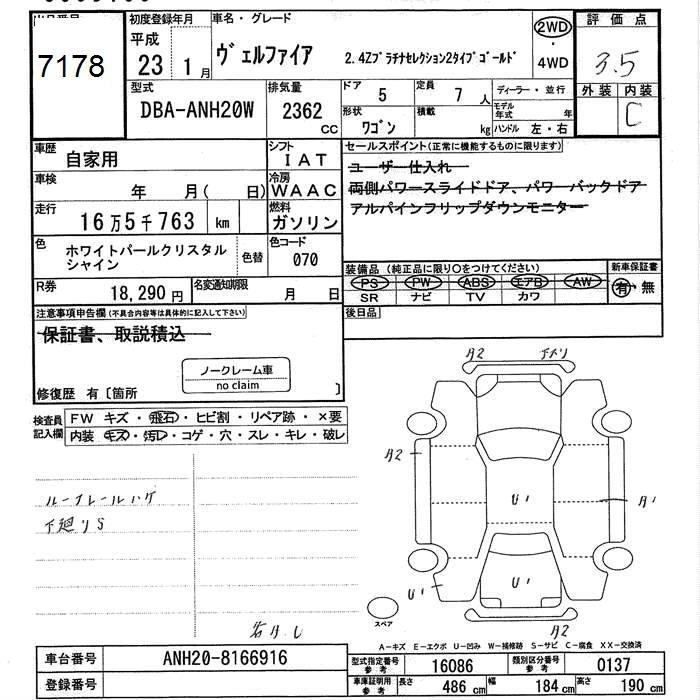 出品番号 初度登録年月 車名・グレード 2WD ・ 4WD 評価点
7178 平成 23 1月 ヴェルファイア 2.4Zプラチナセレクション2タイプゴールド 3.5
外装 内装 C
型式 排気量 ドア 5 定員 7人 ディーラー・並行
DBA-ANH20W 2362 cc 形状 ワゴン 積載 kg モデル年式 年 ハンドル 左・右
車歴 自家用 シフト IAT セールスポイント(正常に機能するものに限ります)
ユーザー仕入れ
車検 年 月( 日) 冷房 WAAC 両側パワースライドドア、パワーバックドア
走行 16万5千763 km 燃料 ガソリン アルパインフリップダウンモニター
色 ホワイトパールクリスタルシャイン 色替 色コード 070
装備品(純正品に限り○をつけてください) 新車保証書
R券 18,290円 名変通知期限 月 日 PS PW ABS エアB AW 有・無
SR ナビ TV カワ
注意事項申告欄(不具合内容等は具体的に記入して下さい) 後日品
保証書、取説積込
ノークレーム車
no claim
修復歴 有〔箇所 〕
検査員記入欄 FW キズ・飛石・ヒビ割・リペア跡・×要
内装 キズ・汚レ・コゲ・穴・スレ・キレ・破レ
A2
A2
A1
U1
U1
U1
A2
ルーフレールハゲ
下廻りS
スペア
A-キズ E-エクボ U-凹み W-補修跡 S-サビ C-腐食 XX-交換済
車台番号 ANH20-8166916 型式指定番号参考 16086 類別区分番号参考 0137
登録番号 車庫証明用参考 長さ 486cm 幅 184cm 高さ 190cm